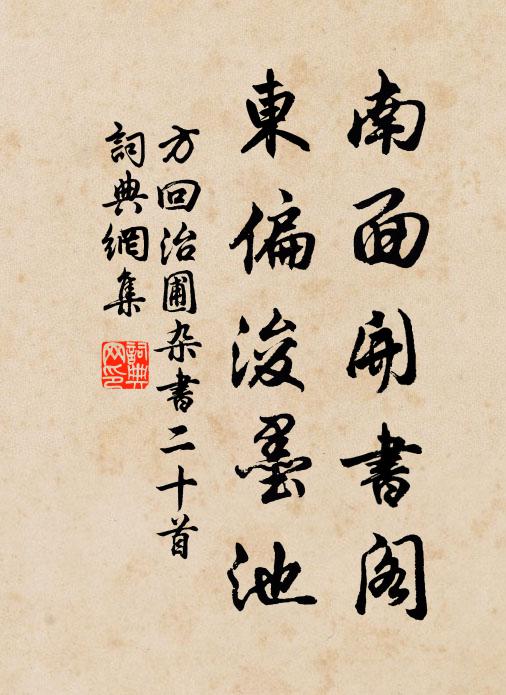 南面開書閣
東偏浚墨池
方回治圃杂書二十首
詞典網集
詞典網印